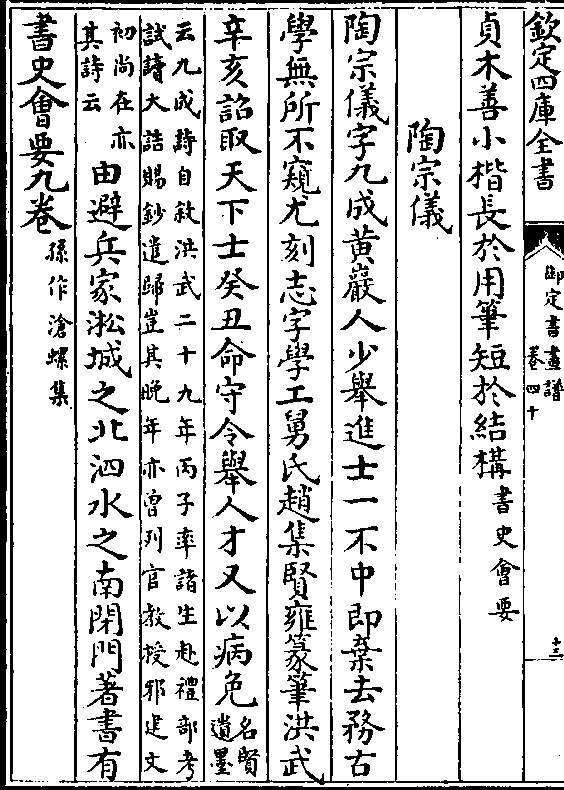 欽定四庫全書
御定書畫譜
卷四十
十三
貞木善小楷長於用筆短於結構 書史會要
陶宗儀
陶宗儀字九成黃巖人少舉進士一不中即棄去務古
學無所不窺尤刻志字學工舅氏趙集賢雍篆筆洪武
辛亥詔取天下士癸丑命守令舉人才又以病免 名賢遺墨
云九成詩自敘洪武二十九年丙子率諸生赴禮部考
試讀大誥賜鈔遣歸豈其晚年亦曾列官教授邪建文
初尚在亦
其詩云
由避兵家淞城之北泗水之南閉門著書有
書史會要九卷 孫作滄螺集